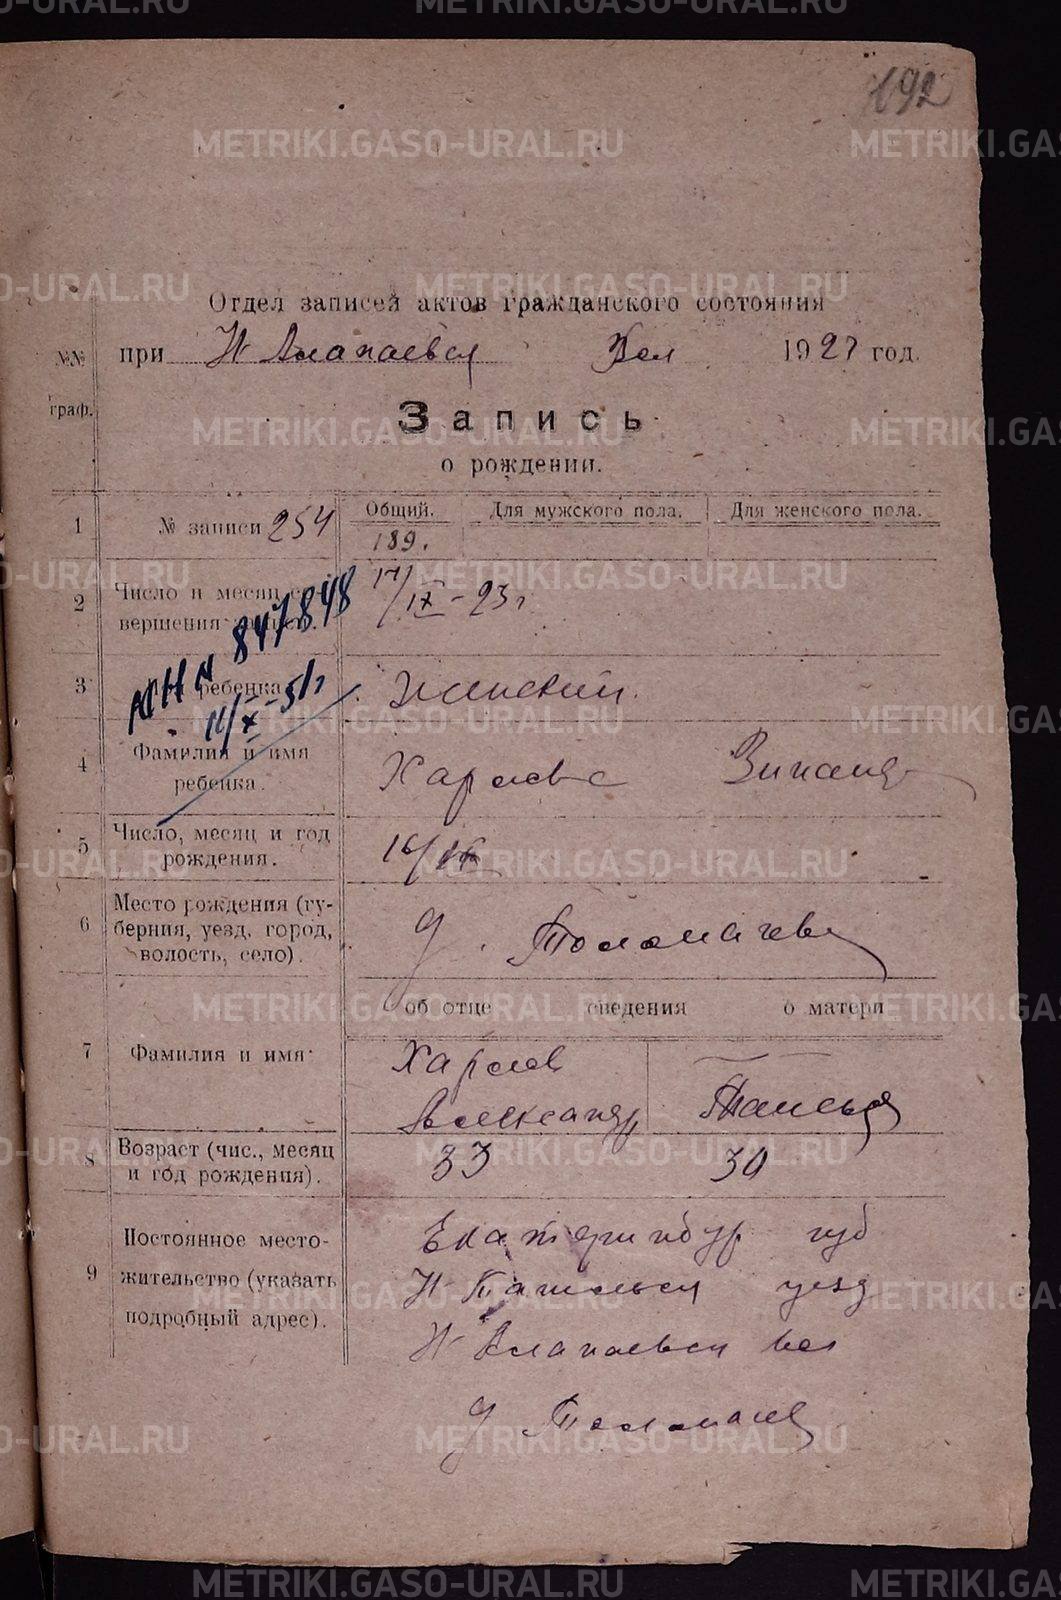 192
Отдел записей актов гражданского состояния
№№ при Н Алапаевск Вол 1923 год.
граф.
Запись
о рождении.
1 № записи 254 Общий. Для мужского пола. Для женского пола.
189.
2 Число и месяц со-
вершения записи. 17/IX-23 г
847848
3 ребенка Женский.
14/X-51 г
4 Фамилия и имя
ребенка. Харлова Зинаид
5 Число, месяц и год
рождения. 16/IX
6 Место рождения (гу-
берния, уезд, город,
волость, село). д. Толмачева
об отце сведения о матери
7 Фамилия и имя Харлов
Александр Татьяна
8 Возраст (чис., месяц
и год рождения). 33 30
9 Постоянное место-
жительство (указать
подробный адрес).
Екатеринбур губ
Н Тагильск уезд
Н Алапаевск вол
д Толмачев
METRIKI.GASO-URAL.RU